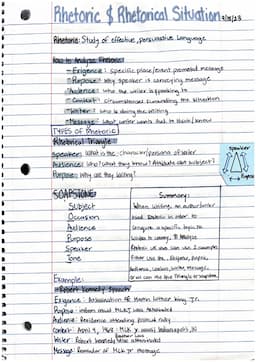 Rhetoric & Rhetorical Situation
Rhetoric: Study of effective, persuasive language
How to Analyze Rhetoric
- Exigence: specific place/event promoted message
- Purpose: Why speaker is conveying message
- Audience: Who the writer is speaking to
- Context: Circumstances surrounding the situation
- Writer: Who is doing the writing
- Message: What writer wants that to think/know
TYPES OF Rhetoric
Rhetorical Triangle:
Speaker: What is the character/persona of writer
Audience: Who? What they know? Attitude abt subject?
Purpose: Why are they writing?
Speaker
SOAPSTONE:
Subject
Occasion
Audience
Purpose
Speaker
Tone
Summary:
When writing, an author/writer
used Rhetoric in order to
Audience, Context, Writer, Message,
or we can use the Triangle or soapstone
Example:
- Robert Kennedy Speech
Exigence: Assassination of Martin Luther King Jr.
Purpose: inform crowd MLKJ was assassinated
Audience: Residence attending political rally
Context: April 4, 1968 MLK Jr. Indianapolis, IN
Writer: Robert Kennedy
Message: Reminder of MLK Jr message